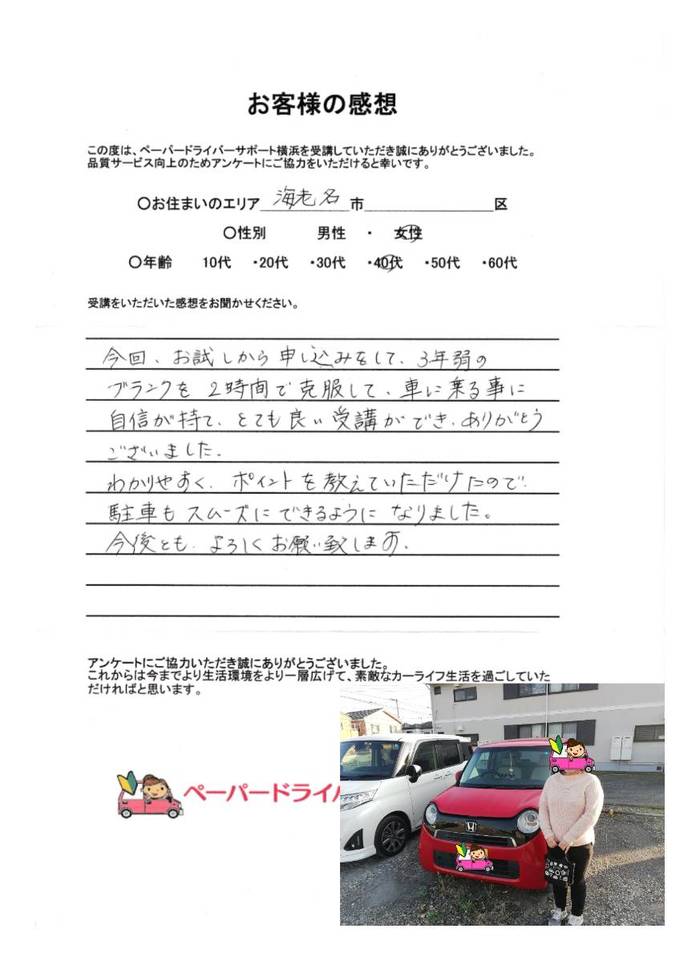 お客様の感想
この度は、ペーパードライバーサポート横浜を受講していただき誠にありがとうございました。
品質サービス向上のためアンケートにご協力をいただけると幸いです。
〇お住まいのエリア 海老名 市 区
〇性別 男性 ・ 女性
〇年齢 10代 ・20代 ・30代 ・40代 ・50代 ・60代
受講をいただいた感想をお聞かせください。
今回、お試しから申し込みをして、3年弱の
ブランクを2時間で克服して、車に乗る事に
自信が持て、とても良い受講ができ、ありがとう
ございました。
わかりやすく、ポイントを教えていただけたので
駐車もスムーズにできるようになりました。
今後とも、よろしくお願い致します。
アンケートにご協力いただき誠にありがとうございました。
これからは今までより生活環境をより一層広げて、素敵なカーライフ生活を過ごしていた
だければと思います。
ペーパードライバ